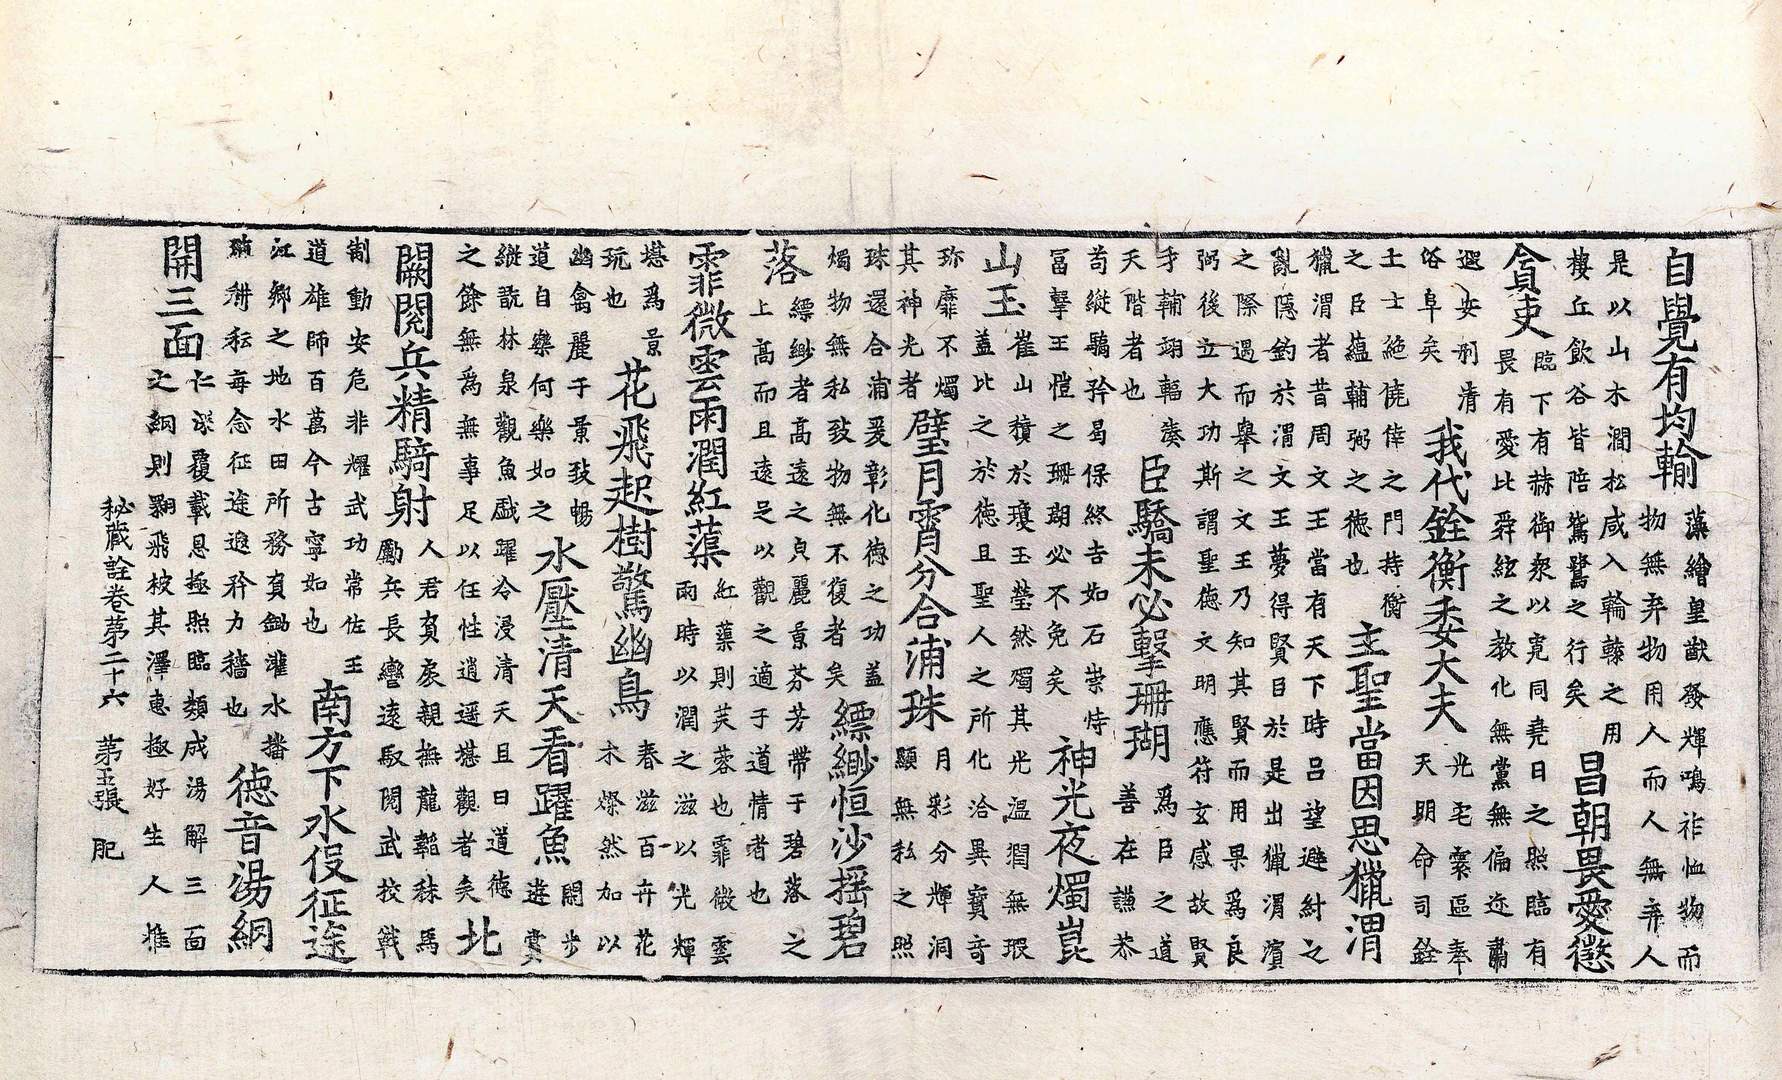 自覺有均輸
藻繪皇猷發輝鳴祚恤物而
物無弃物用人而人無弃人
是以山木澗松咸入輪轅之用
棲丘飲谷皆陪鴛鷺之行矣
昌朝畏愛懲
貪吏
臨下有赫御衆以寬同堯日之照臨有
畏有愛比舜絃之教化無黨無偏迩肅
遐安刑清
俗阜矣
我代銓衡委大夫
光宅寰區奉
天明命司銓
土士絶僥倖之門持衡
之臣蘊輔弼之德也
主聖當因思獵渭
獵渭者昔周文王當有天下時吕望避紂之
亂隱釣於渭文王夢得賢目於是出獵渭濱
之際遇而舉之文王乃知其賢而用果爲良
弼後立大功斯謂聖德文明應符玄感故賢
手輔翊輻湊
天階者也
臣驕未必擊珊瑚
爲臣之道
善在謙恭
苟縱驕矜曷保終吉如石崇恃
冨擊王愷之珊瑚必不免矣
神光夜燭崑
山玉
崔山積於瓊玉瑩然獨其光溫潤無瑕
蓋比之於德且聖人之所化洽異寶竒
珎靡不燭
其神光者
璧月霄分合浦珠
月彩分輝洞
顯無私之照
珠還合浦爰彰化德之功蓋
燭物無私致物無不復者矣
縹緲恒沙揺碧
落
縹緲者高遠之貞麗景芬芳帶于碧落之
上高而且遠足以觀之適于道情者也
霏微雲雨潤紅蕖
紅蕖則芙蓉也霏微雲
雨時以潤之滋以光輝
堪爲景
玩也
花飛起樹驚幽鳥
春滋百卉花
木燦然如以
幽禽麗于景致暢
道自樂何樂如之
水壓清天看躍魚
閑步
遊賞
縱翫林泉觀魚戱躍冷浸清天且曰道德
之餘無爲無事足以任性逍遥堪觀者矣
北
闕閲兵精騎射
人君育辰親撫龍韜秣馬
勵兵長轡遠馭閲武校戰
制動安危非耀武功常佐王
道雄師百萬今古寧如也
南方下水伇征途
江鄉之地水田所務育鋤灌水播
耕耘每念征途遼矜力穡也
德音湯網
開三面
仁深覆載恩極照臨類成湯解三面
之網則翾飛被其澤惠極好生人推
秘藏詮卷第二十六 第五張 肥